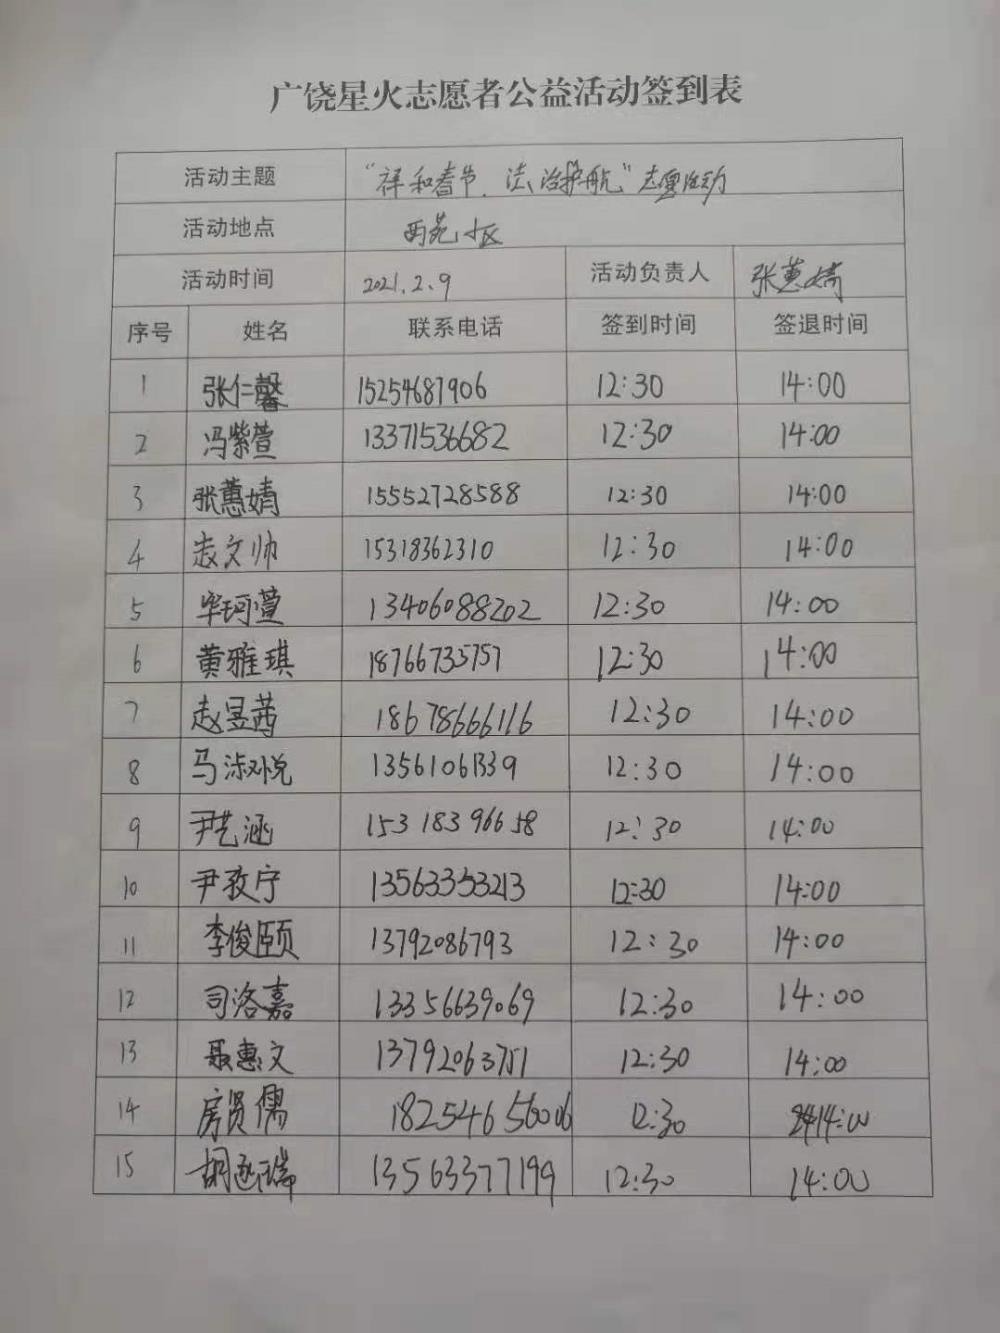 广饶星火志愿者公益活动签到表
活动主题 “祥和春节、法治护航”志愿活动
活动地点 西苑小区
活动时间 2021.2.9 活动负责人 张蕙婧
序号 姓名 联系电话 签到时间 签退时间
1 张仁馨 15254687906 12:30 14:00
2 冯紫萱 13371536682 12:30 14:00
3 张蕙婧 15552728588 12:30 14:00
4 袁文帅 15318362310 12:30 14:00
5 毕珂萱 13406088202 12:30 14:00
6 黄雅琪 18766735757 12:30 14:00
7 赵昱茜 18678666116 12:30 14:00
8 马淑悦 13561061339 12:30 14:00
9 尹艺涵 15318396658 12:30 14:00
10 尹孜宁 13563353213 12:30 14:00
11 李俊颐 13792086793 12:30 14:00
12 司洛嘉 13356639069 12:30 14:00
13 聂惠文 13792063751 12:30 14:00
14 房贤儒 18254656006 12:30 14:00
15 胡丞瑞 13563377199 12:30 14:00